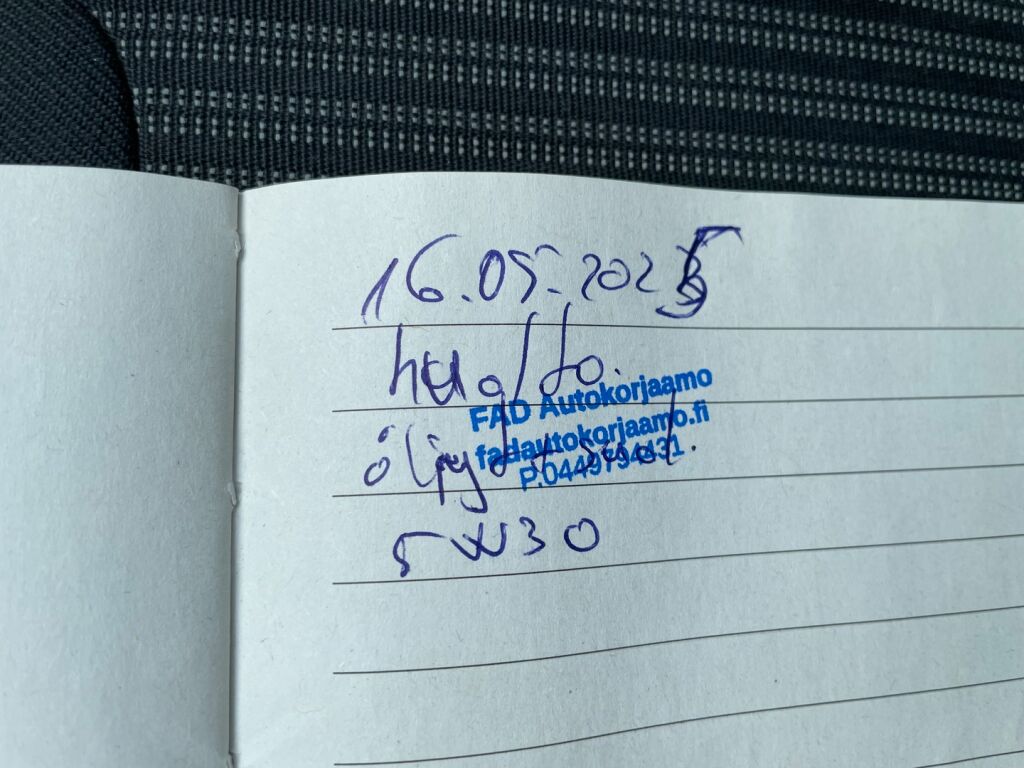 16.05.2025
huolto.
FAD Autokorjaamo
fadautokorjaamo.fi
öljyt + suod.
P.0449794431
5W30